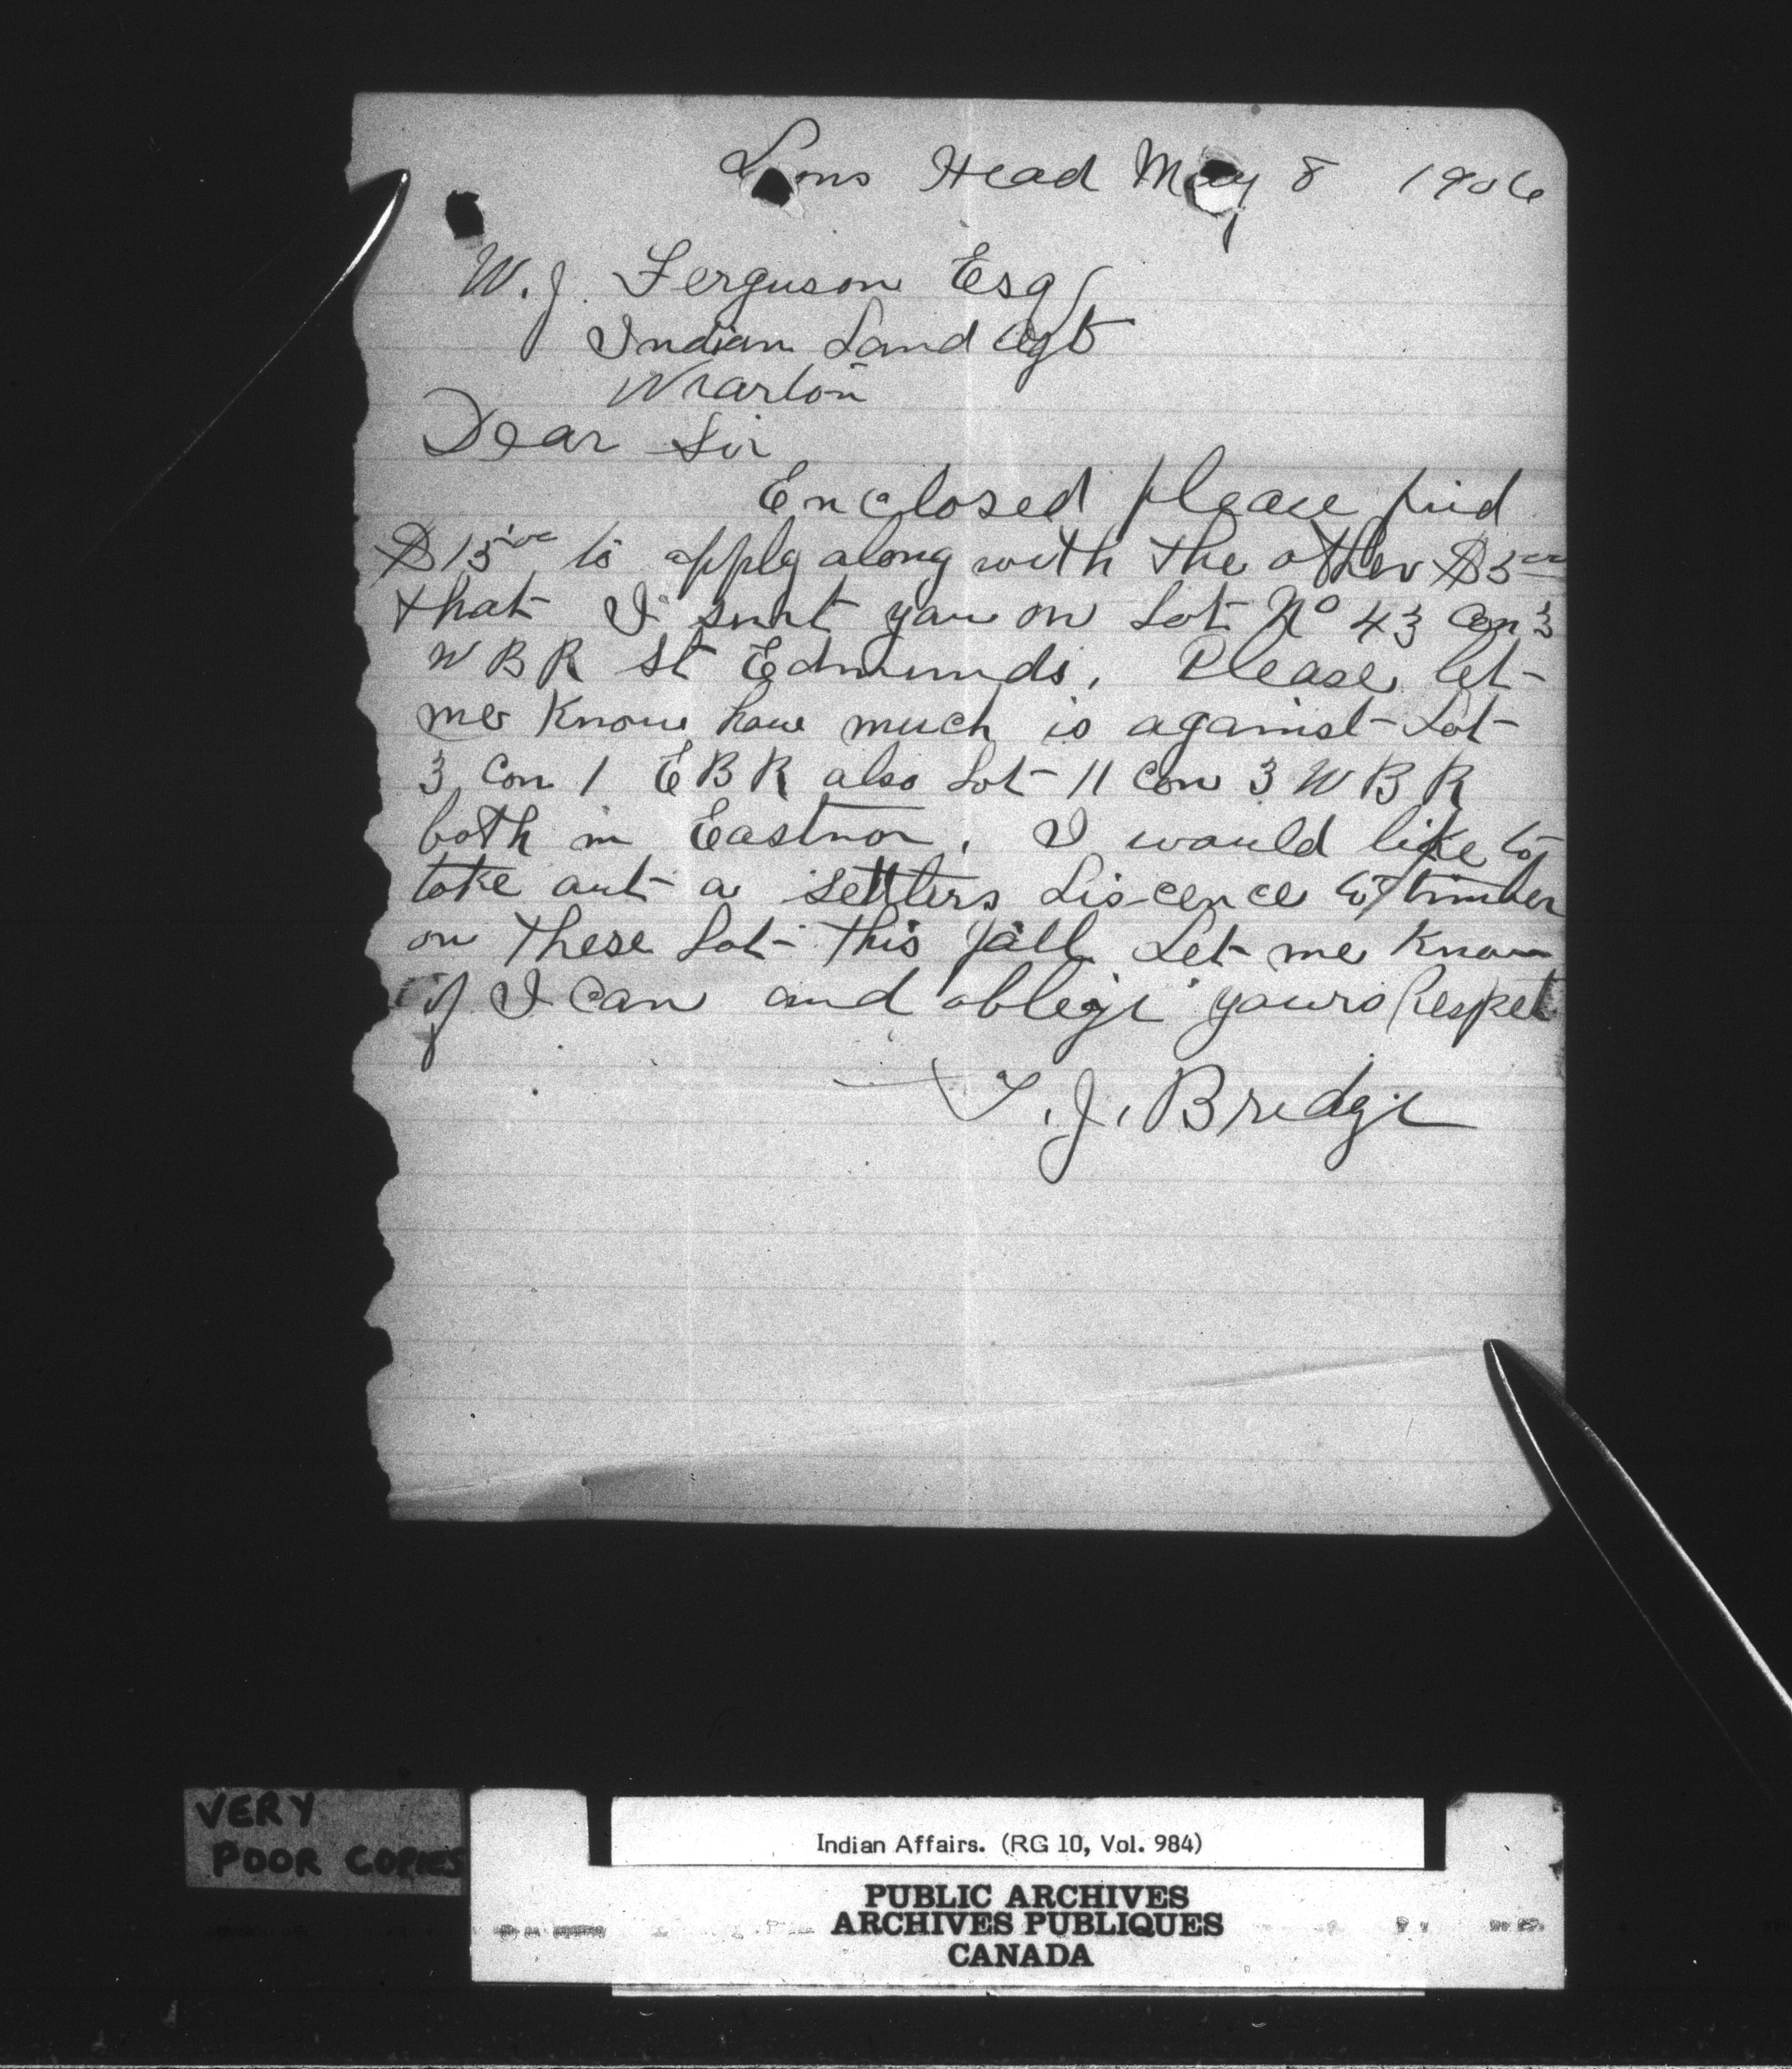 Lions Head May 8 1906
W. J. Ferguson Esq
Indian Land Agt
Wiarton
Dear Sir
Enclosed please find
$15.00 to apply along with the other $5.00
that I sent you on Lot No 43 Con 3
W B R St Edmunds. Please let
me know how much is against Lot
3 Con 1 E B R also Lot 11 Con 3 W B R
both in Eastnor. I would like to
take out a settlers Liscence to timber
on these Lot this fall Let me know
if I can and oblege yours Respet
T. J. Bridge
VERY
POOR COPIES
Indian Affairs. (RG 10, Vol. 984)
PUBLIC ARCHIVES
ARCHIVES PUBLIQUES
CANADA